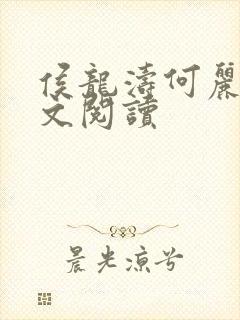 侯龍濤何麗
文閱讀
晨光涼兮